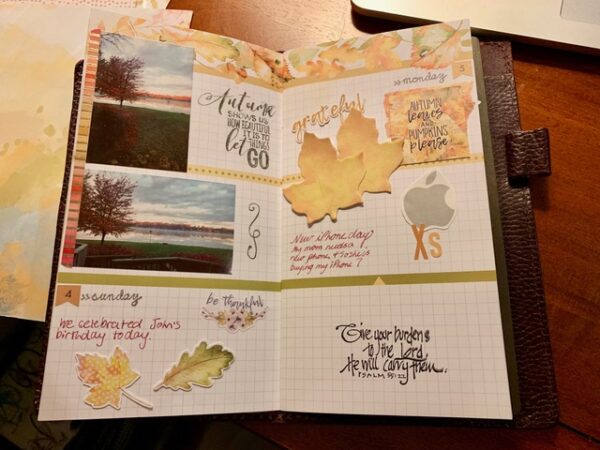 Autumn
SHOWS US
HOW BEAUTIFUL
IT IS TO
let THINGS
GO
4 »sunday
be thankful
We celebrated John's
birthday today.
5
»monday
grateful
AUTUMN
leaves
AND
PUMPKINS
please!
New iPhone day!
My mom needs a
new phone, & so she is
buying my iPhone 7.
Xs
Give your burdens
to the Lord,
He will carry them.
PSALM 55:22